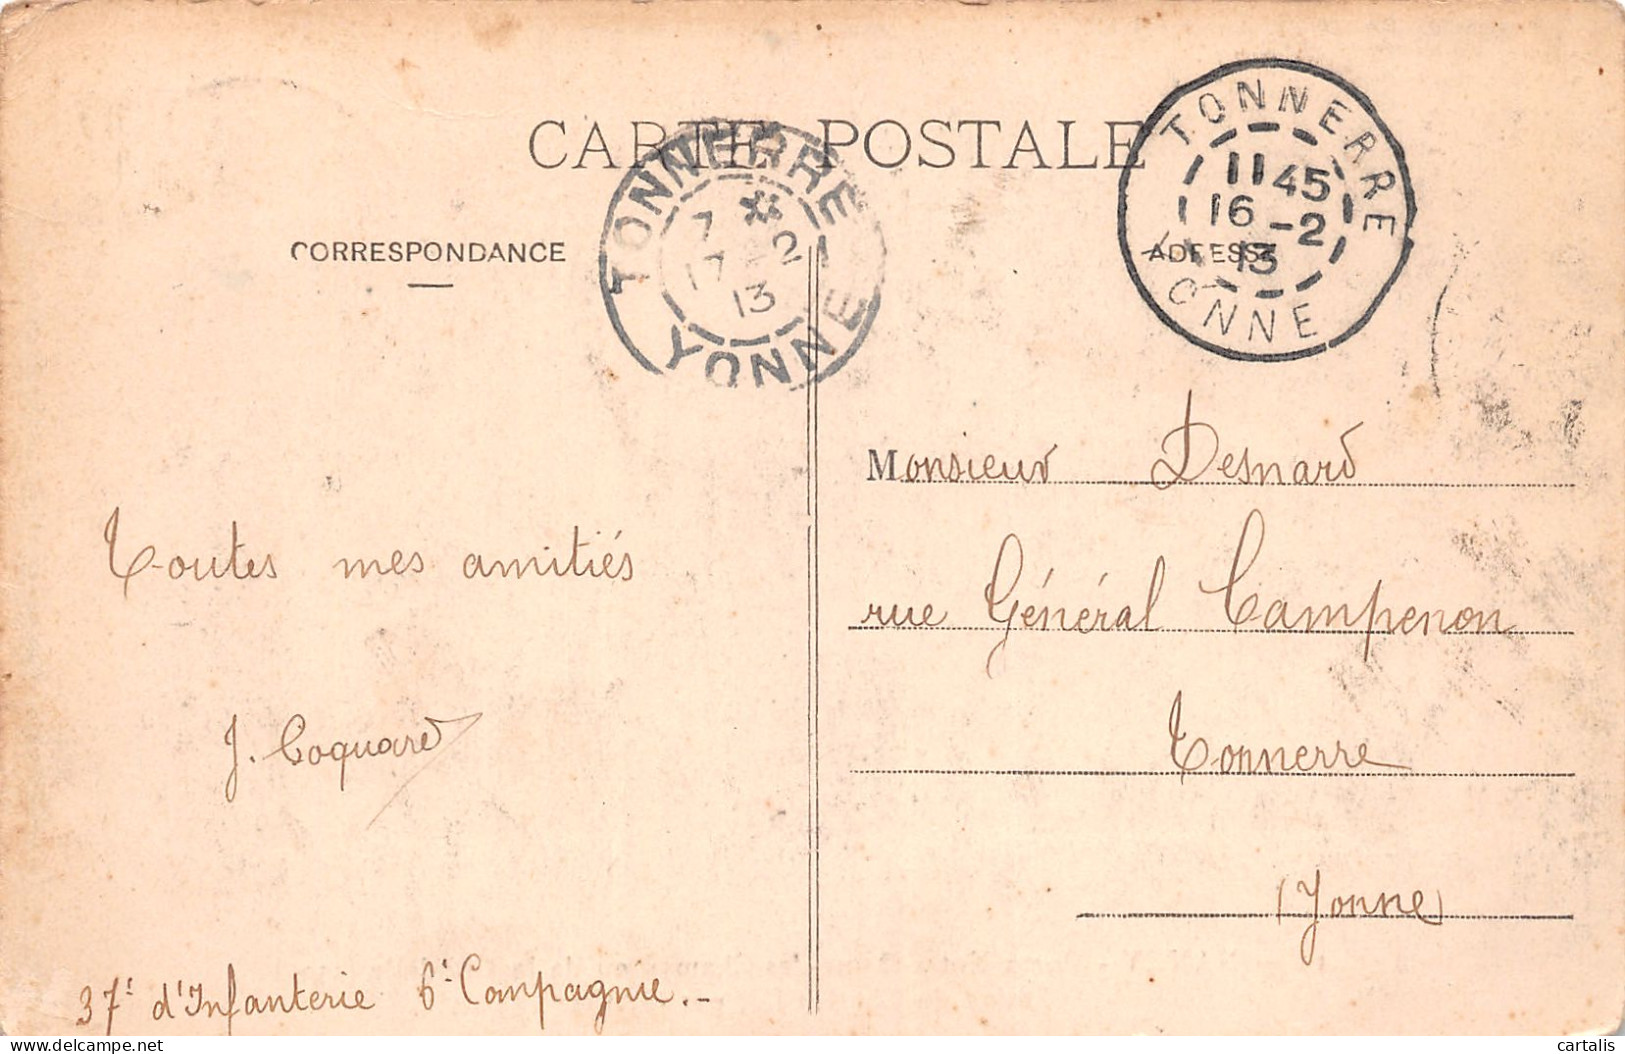 CARTE POSTALE
CORRESPONDANCE
ADRESSE
TONNERRE
7 *
17 - 2
13
YONNE
TONNERRE
11 45
16 - 2
13
YONNE
Toutes mes amitiés
J. Coquard
37e d'Infanterie 6e Compagnie.-
Monsieur Desnard
rue Général Campenon
Tonnerre
(Yonne)
cartalis
delcampe.net